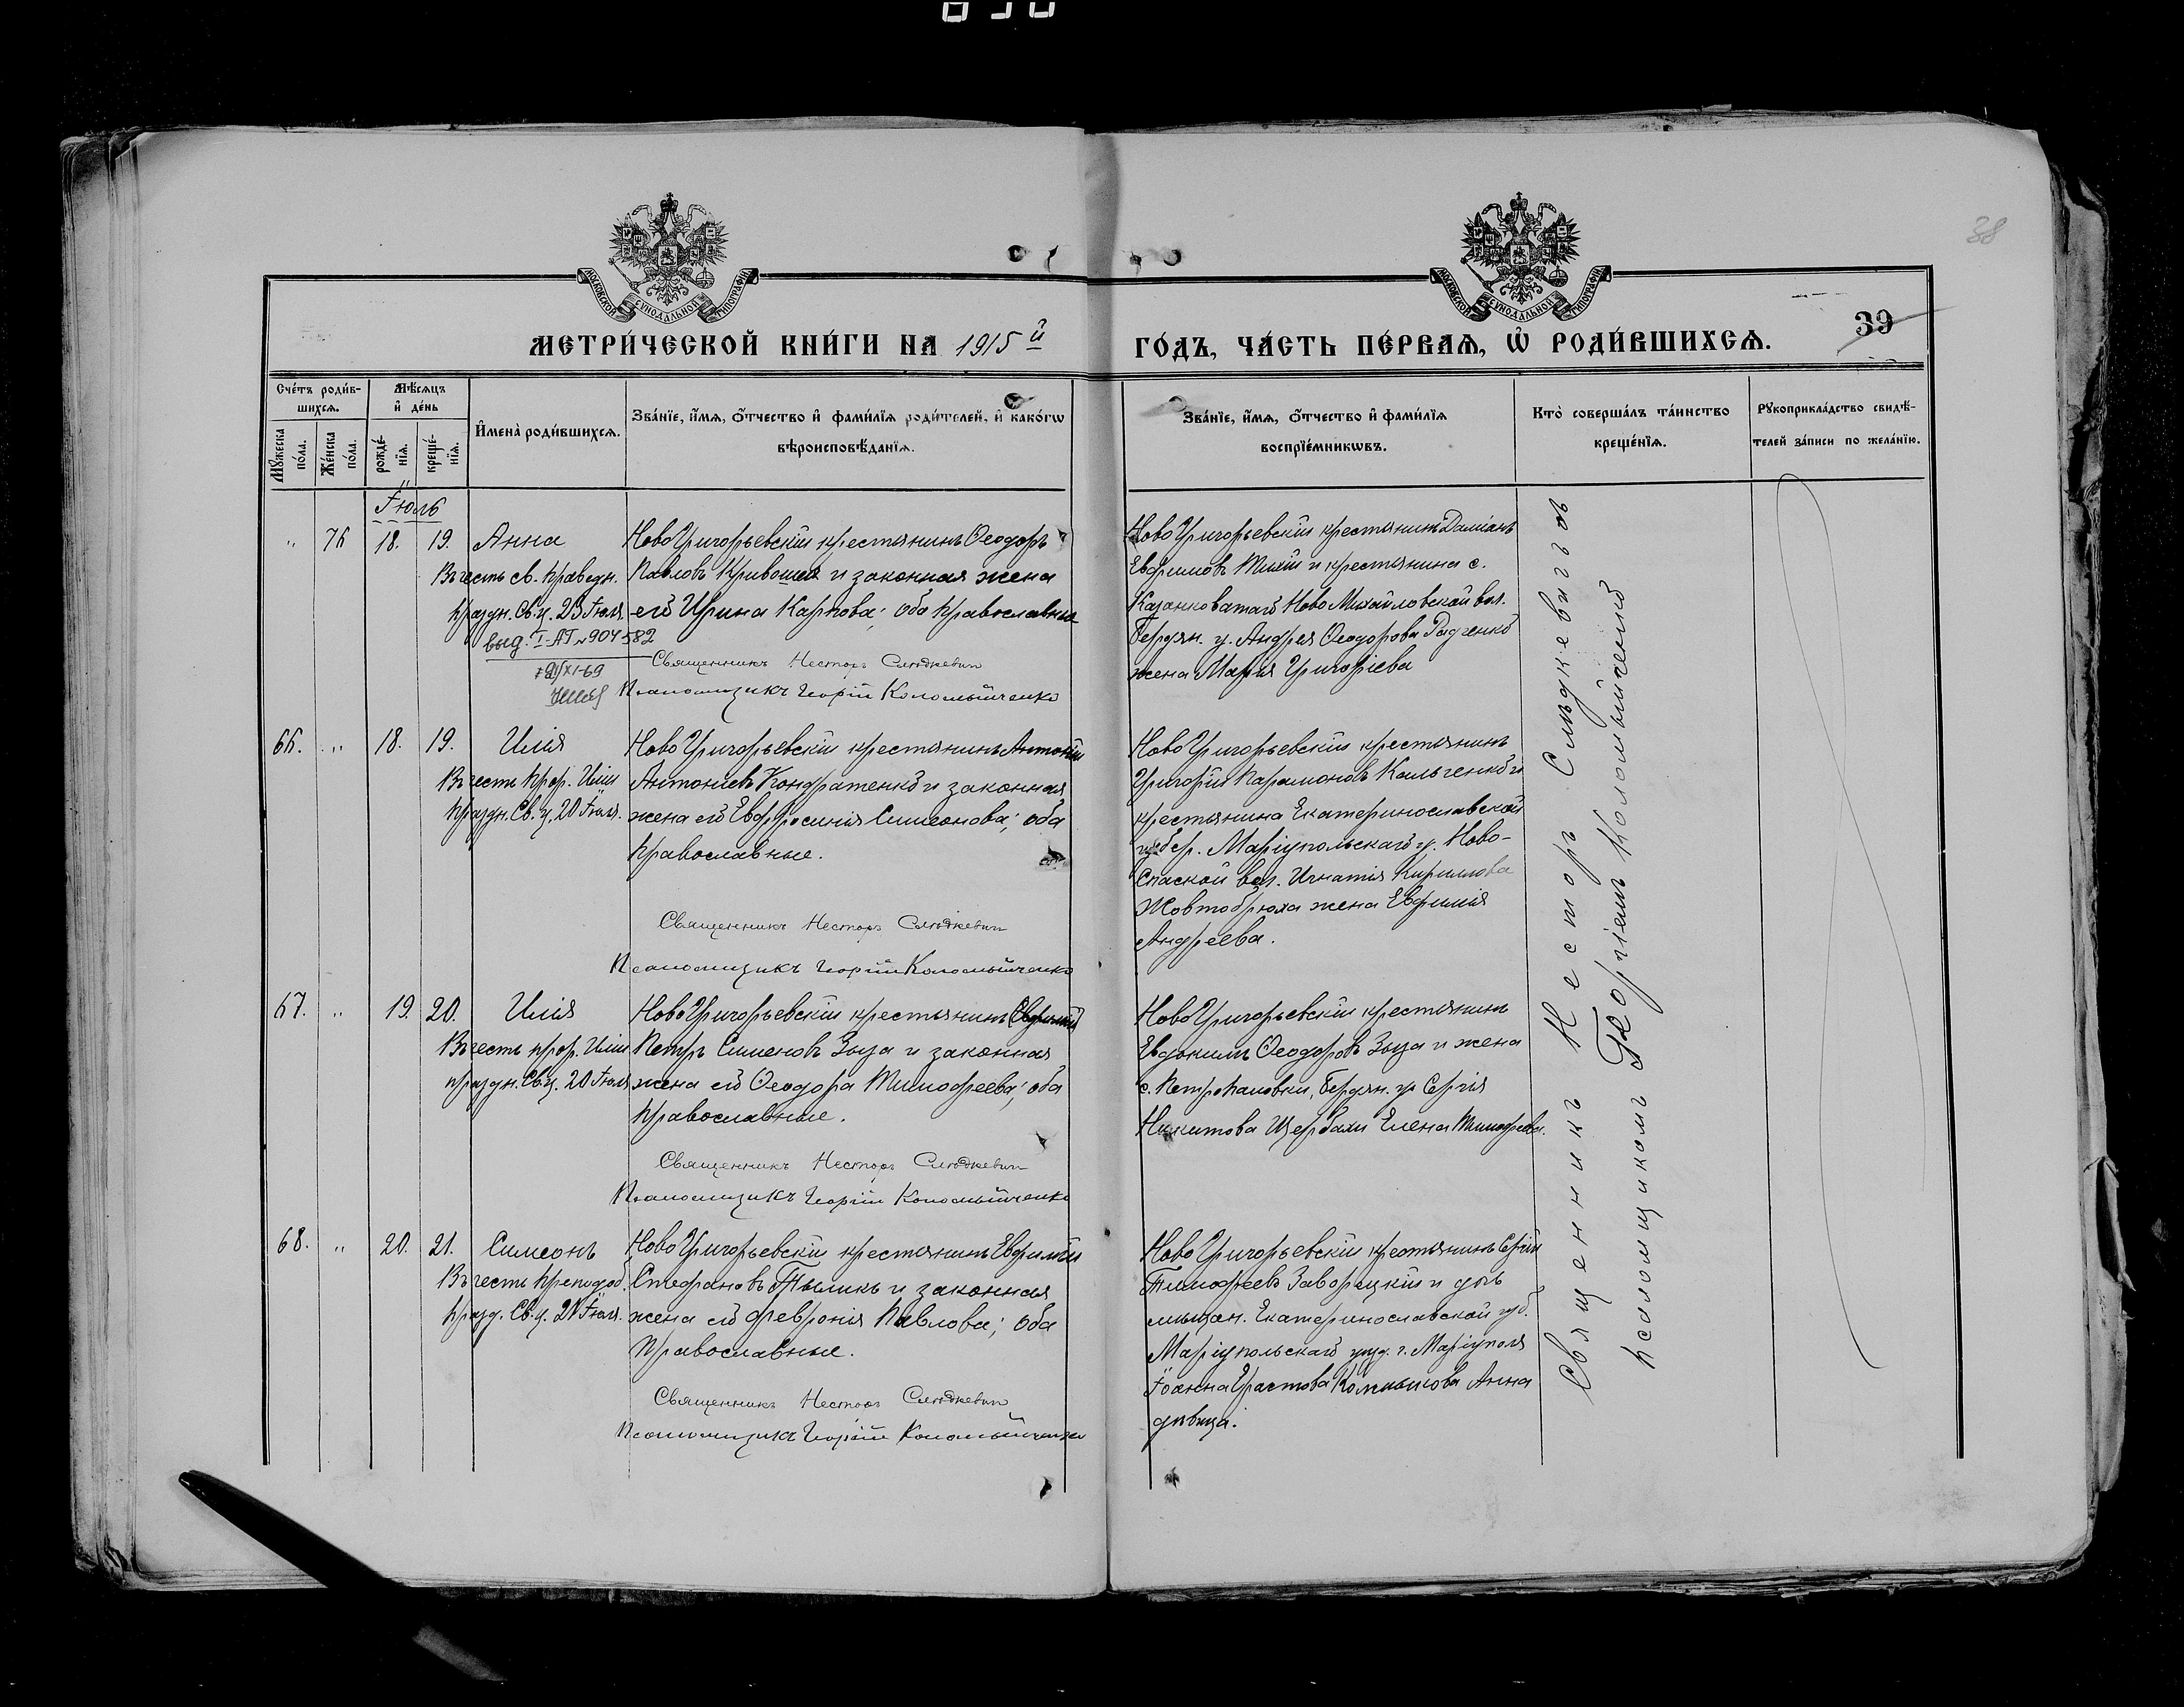 38
МОСКОВСКОЙ СУНОДАЛЬНОЙ ТИПОГРАФІИ
МОСКОВСКОЙ СУНОДАЛЬНОЙ ТИПОГРАФІИ
МЕТРИ́ЧЕСКОЙ КНИ́ГИ НА 1915й
ГО́ДЪ, ЧА́СТЬ ПЕ́РВАѦ, Ѡ҆ РОДИ́ВШИХСѦ.
39
Сче́тъ роди́в-
шихсѧ.
Мꙋ́жеска по́ла.
Же́нска по́ла.
Мѣ́сѧцъ и҆ де́нь
рожде́-нїѧ.
креще́-нїѧ.
И҆мена̀ роди́вшихсѧ.
Зва́нїе, и҆́мѧ, ѻ҆́тчество и҆ фами́лїѧ роди́телей, и҆ како́гѡ
вѣроисповѣ́данїѧ.
Зва́нїе, и҆́мѧ, ѻ҆́тчество и҆ фами́лїѧ
воспрїе́мникѡвъ.
Кто̀ соверша́лъ та́инство
креще́нїѧ.
Рꙋкоприкла́дство свидѣ́-
телей за́писи по жела́нїю.
Іюль
" 76 18. 19. Анна
Въ честь св. праведн.
праздн. Св. ц. 25 Іюля.
выд. I-АП №904582
Ново Григорьевскій крестьянинъ Ѳеодоръ
Павловъ Кривошея и законная жена
его Ирина Карпова; оба православные
Священникъ Несторъ Слѣдкевич
Псаломщикъ Георгій Коломыйченко
Ново Григорьевскій крестьянинъ Даміанъ
Евфимовъ и крестьянина с.
Казанковатаго Ново Михайловской вол.
Бердян. у. Андрея Ѳеодорова Радченко
жена Марія Григоріева
66. " 18. 19. Илія
Въ честь прор. Иліи
праздн. Св. ц. 20 Іюля.
Ново Григорьевскій крестьянинъ Антоній
Антоніевъ Кондратенко и законная
жена его Евфросинія Симеонова; оба
православные.
Священникъ Несторъ Слѣдкевич
Псаломщикъ Георгій Коломыйченко
Ново Григорьевскій крестьянинъ
Григорій Парамоновъ Кальченко и
крестьянина Екатеринославской
губер. Маріупольскаго у. Ново-
Спаской вол. Игнатія Кириллова
Жовтобрюха жена Евфимія
Андреева.
67. " 19. 20. Илія
Въ честь прор. Иліи
праздн. Св. ц. 20 Іюля
Ново Григорьевскій крестьянинъ
Петръ Сименовъ Зоза и законная
жена его Ѳеодора Тимофеева; оба
православные.
Священникъ Несторъ Слѣдкевич
Псаломщикъ Георгій Коломыйченко
Ново Григорьевскій крестьянинъ
Евдокимъ Ѳеодоровъ Зоза и жена
с. Петропаловки, Бердян. у. Сергія
Никитова Щербахи Елена Тимофеева.
68. " 20. 21. Симеонъ
Въ честь преподоб.
празд. Св. ц. 21 Іюля.
Ново Григорьевскій крестьянинъ Евфимій
Стефановъ и законная
жена его Февронія Павлова; оба
Православные.
Священникъ Несторъ Слѣдкевич
Псаломщикъ Георгій Коломыйченко
Ново Григорьевскій крестьянинъ Сергій
Тимофеевъ Заворецкій и дочь
мѣщан. Екатеринославской губ.
Маріупольскаго уѣзд. г. Маріуполя
Іоанна Ерастова Анна
дѣвица.
Священникъ Несторъ Слѣдкевичъ съ
псаломщикомъ Георгіемъ Коломыйченко